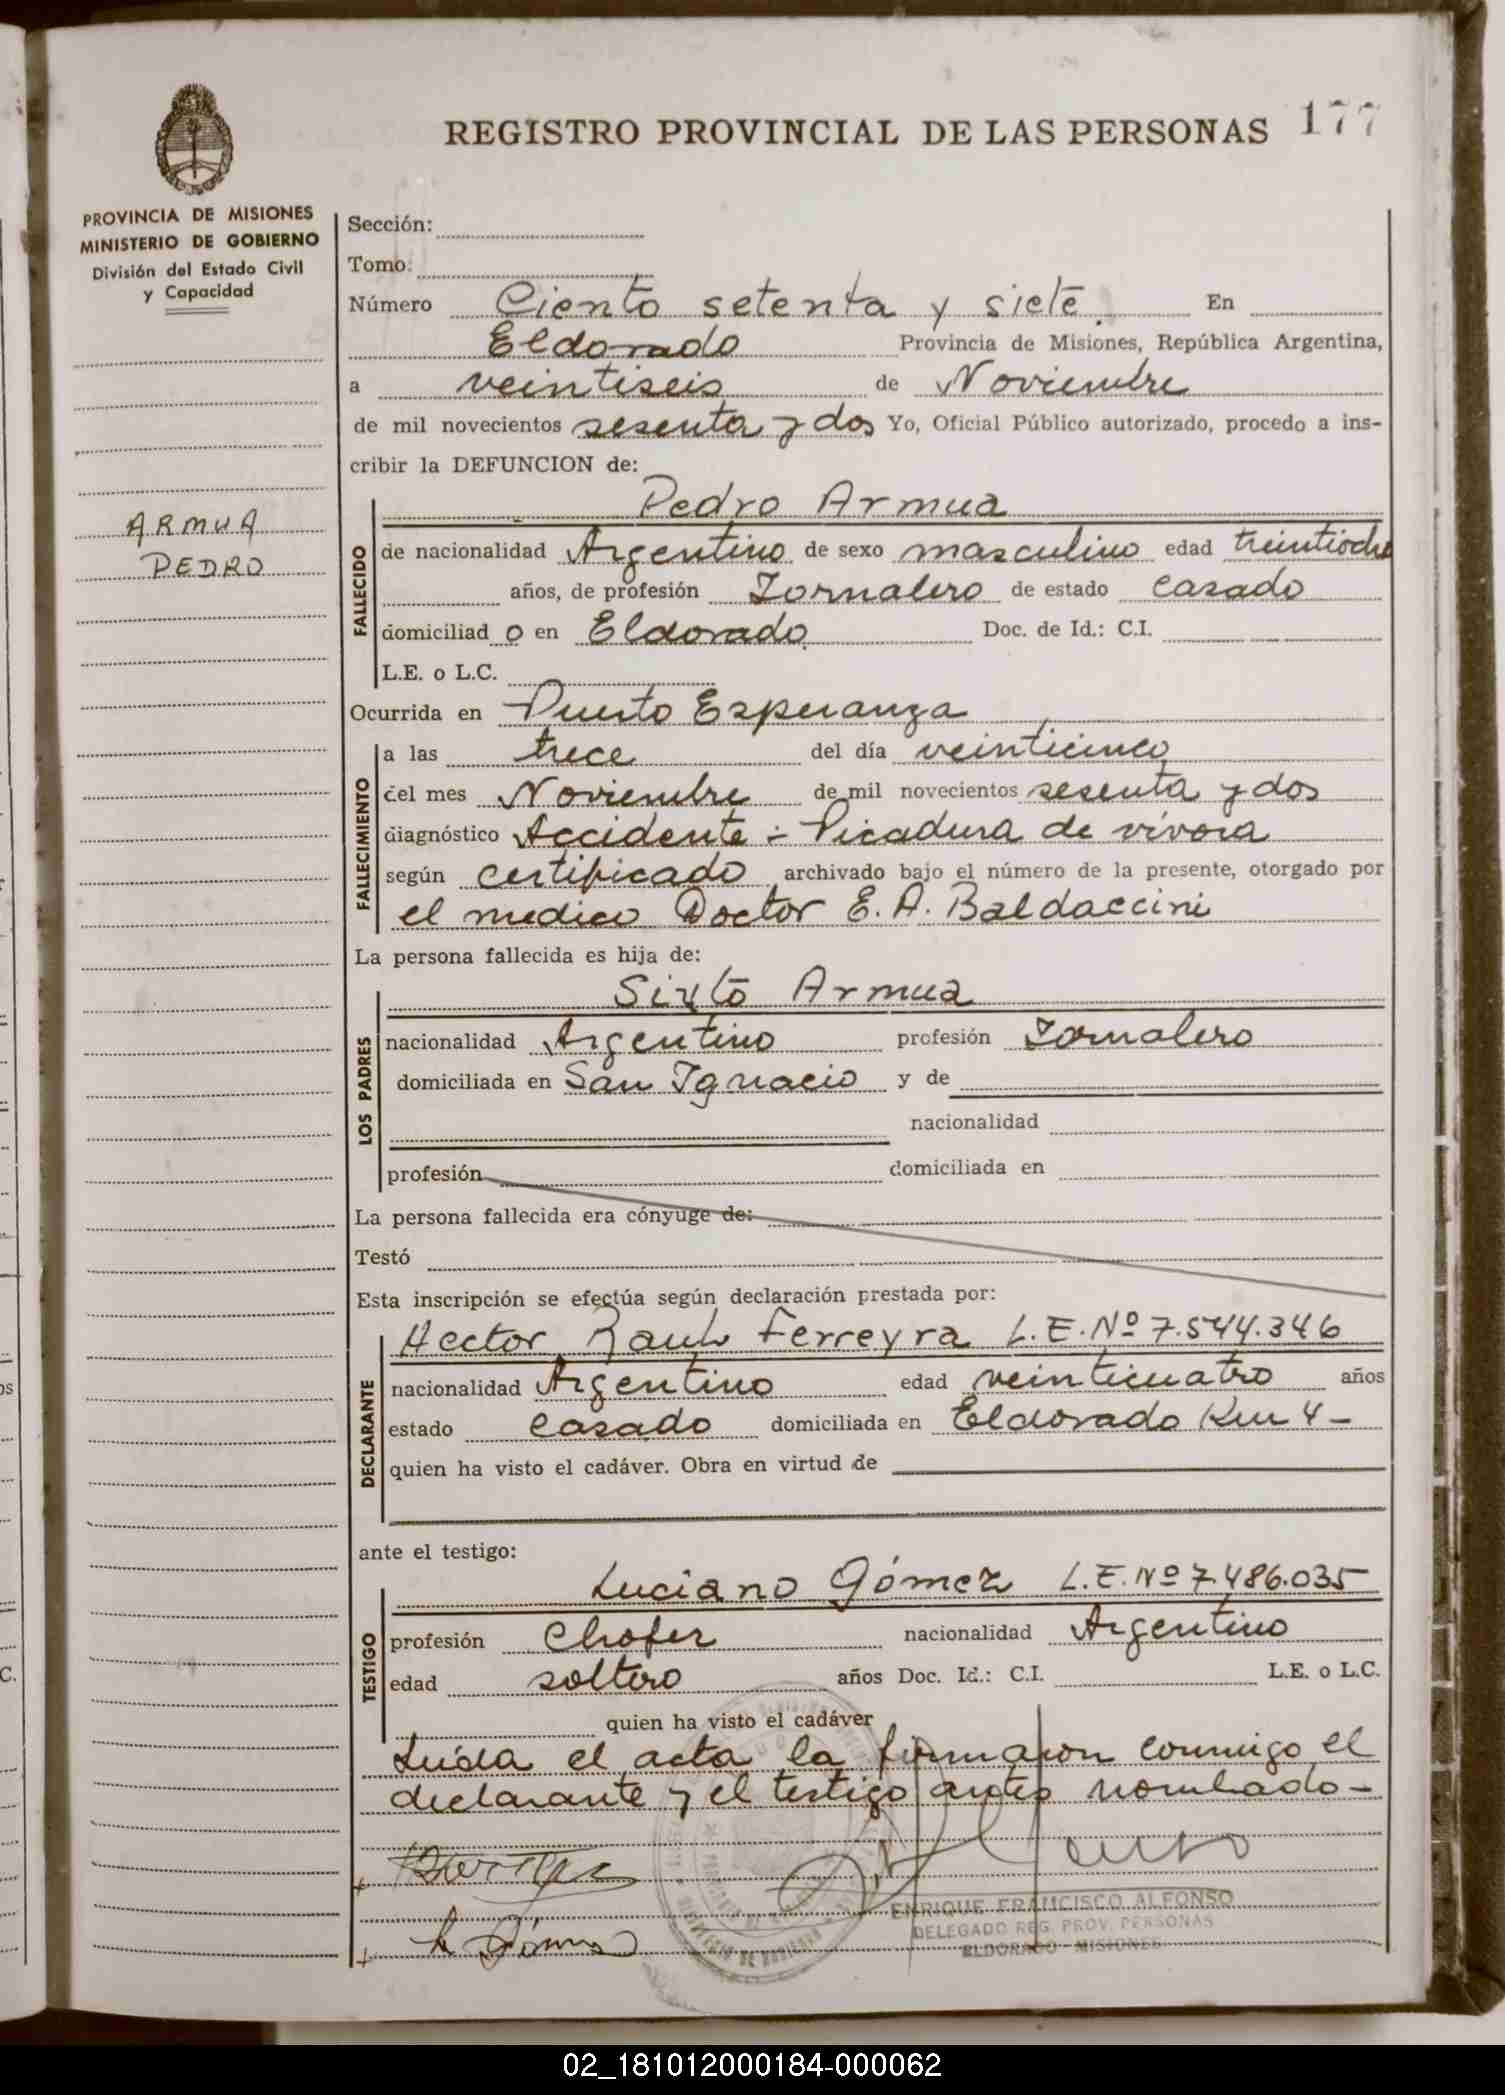 177
REGISTRO PROVINCIAL DE LAS PERSONAS
PROVINCIA DE MISIONES
MINISTERIO DE GOBIERNO
División del Estado Civil
y Capacidad
ARMUA
PEDRO
Sección:
Tomo:
Número Ciento setenta y siete. En
Eldorado Provincia de Misiones, República Argentina,
a veintiseis de Noviembre
de mil novecientos sesenta y dos Yo, Oficial Público autorizado, procedo a ins-
cribir la DEFUNCION de:
FALLECIDO
Pedro Armua
de nacionalidad Argentino de sexo masculino edad treintiocho
años, de profesión Jornalero de estado casado
domiciliad o en Eldorado Doc. de Id.: C.I.
L.E. o L.C.
Ocurrida en Puerto Esperanza
FALLECIMIENTO
a las trece del día veinticinco
del mes Noviembre de mil novecientos sesenta y dos
diagnóstico Accidente ÷ Picadura de vívora
según certificado archivado bajo el número de la presente, otorgado por
el medico Doctor E. A. Baldaccini
La persona fallecida es hija de:
LOS PADRES
Sixto Armua
nacionalidad Argentino profesión Jornalero
domiciliada en San Ignacio y de
nacionalidad
profesión domiciliada en
La persona fallecida era cónyuge de:
Testó
Esta inscripción se efectúa según declaración prestada por:
DECLARANTE
Hector Raul Ferreyra L.E.Nº 7.544.346
nacionalidad Argentino edad veinticuatro años
estado casado domiciliada en Eldorado Km 4-
quien ha visto el cadáver. Obra en virtud de
ante el testigo:
TESTIGO
Luciano Gómez L.E.Nº 7.486.035
profesión Chofer nacionalidad Argentino
edad soltero años Doc. Id.: C.I. L.E. o L.C.
quien ha visto el cadáver
Leída el acta la firmaron conmigo el
declarante y el testigo antes nombrado-
ENRIQUE FRANCISCO ALFONSO
DELEGADO REG. PROV. PERSONAS
ELDORADO - MISIONES
02_181012000184-000062